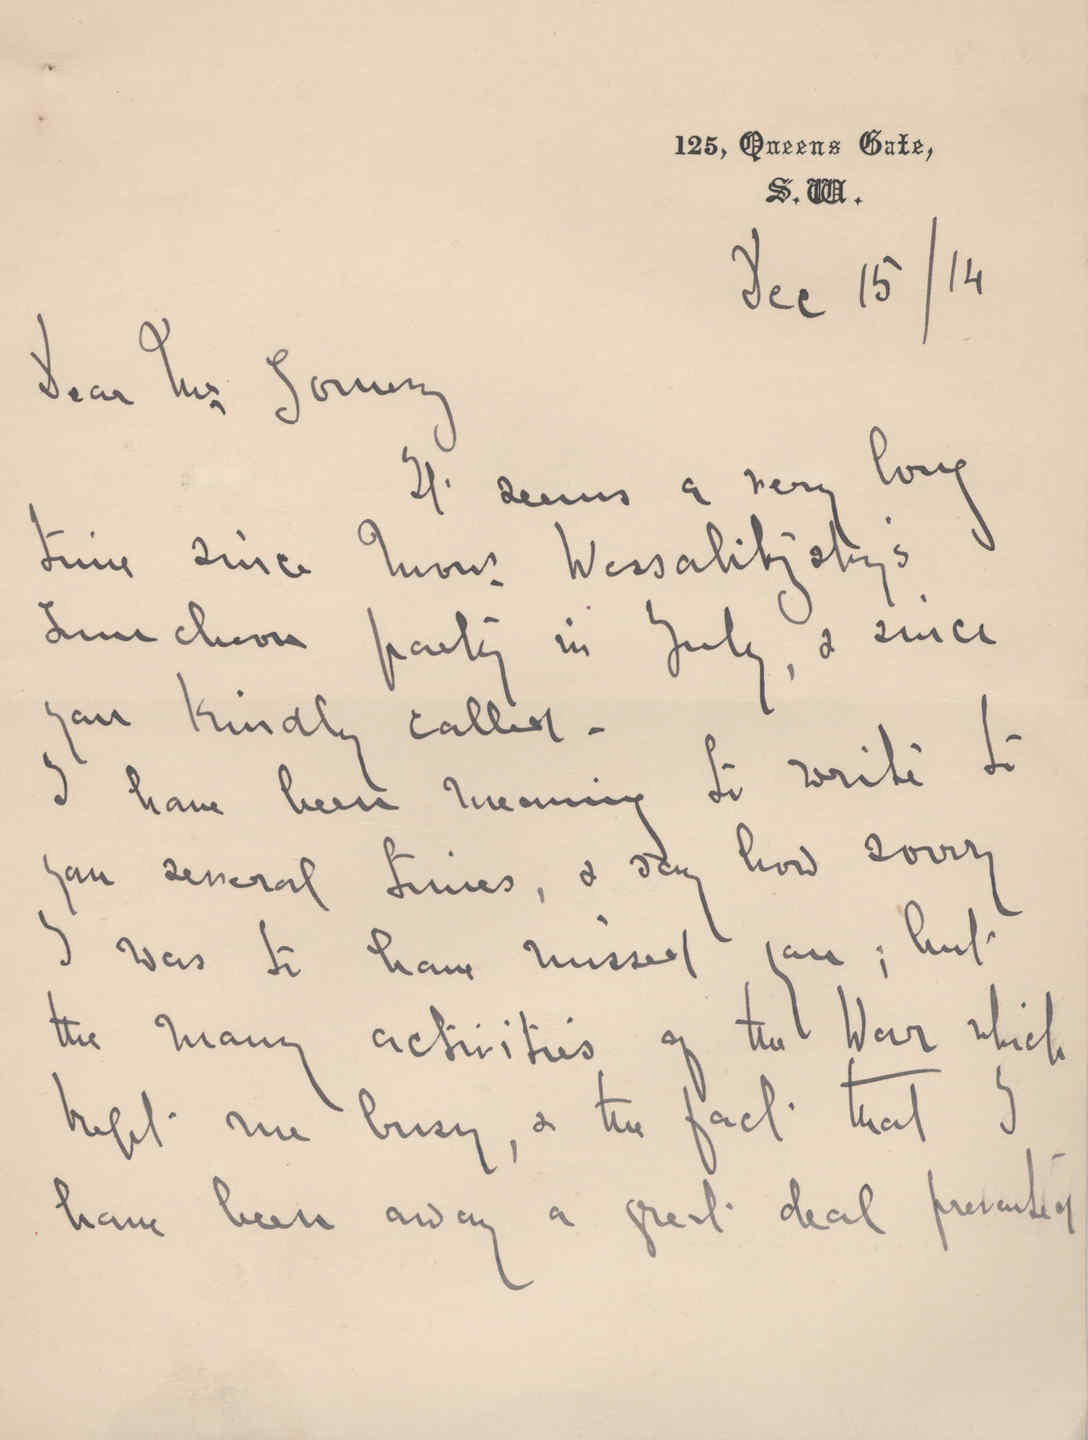 125, Queens Gate,
S.W.
Dec 15/14
Dear Mr
It seems a very long
time since Mons. Wessalitzsky's
Luncheon party in July, & since
you kindly called -
I have been meaning to write to
you several times, & say how sorry
I was to have missed you; but
the many activities of the War which
kept me busy, & the fact that I
have been away a great deal prevented